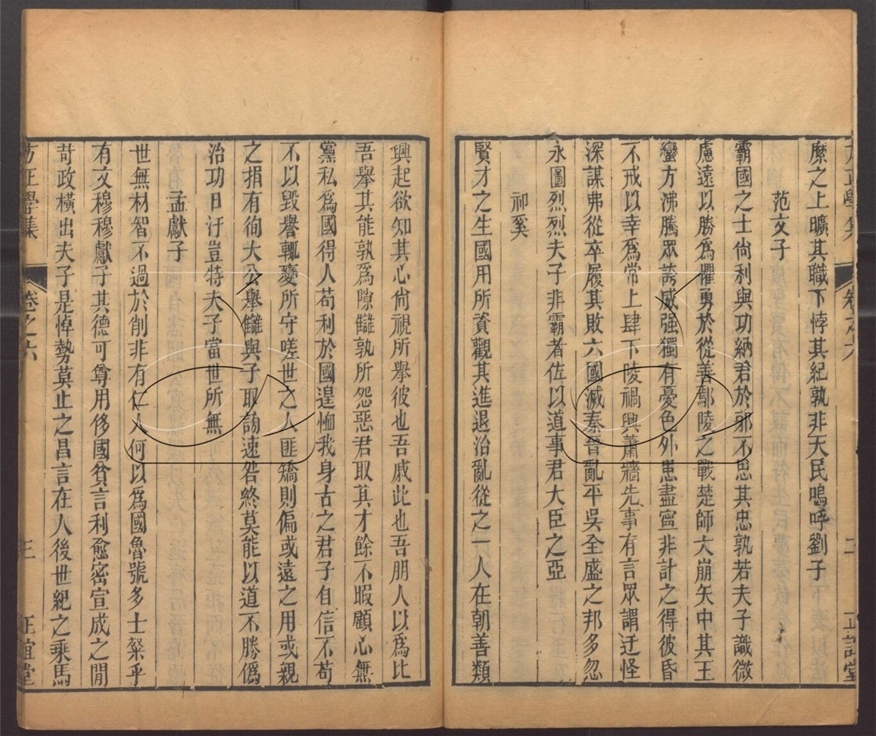 糜之上曠其職下悖其紀孰非天民嗚呼劉子
范文子
霸國之士尙利與功納君於邪不思其忠孰若夫子識微
慮遠以勝爲懼勇於從善鄢陵之戰楚師大崩矢中其王
蠻方沸騰眾誇威强獨有憂色外患盡寧非計之得彼昏
不戒以幸爲常上肆下陵禍興蕭牆先事有言眾謂迂怪
深謀弗從卒履其敗六國滅秦晉亂平吳全盛之邦多忽
永圖烈烈夫子非霸者佐以道事君大臣之亞
祁奚
賢才之生國用所資觀其進退治亂從之一人在朝善類
方正學集
卷之六
二
正誼堂
興起欲知其心尙視所舉彼也吾戚此也吾朋人以爲比
吾舉其能孰爲隙讎孰所怨惡君取其才餘不暇顧心無
黨私爲國得人苟利於國遑恤我身古之君子自信不苟
不以毀譽輒變所守嗟世之人匪矯則偏或遠之用或親
之捐有徇大公舉讎與子取謗速咎終莫能以道不勝僞
治功日汙豈特夫子當世所無
孟獻子
世無材智不過於削非有仁人何以爲國魯號多士粲乎
有文穆穆獻子其德可尊用侈國貧言利愈密宣成之閒
苛政橫出夫子是悼勢莫止之昌言在人後世紀之乘馬
方正學集
卷之六
三
正誼堂